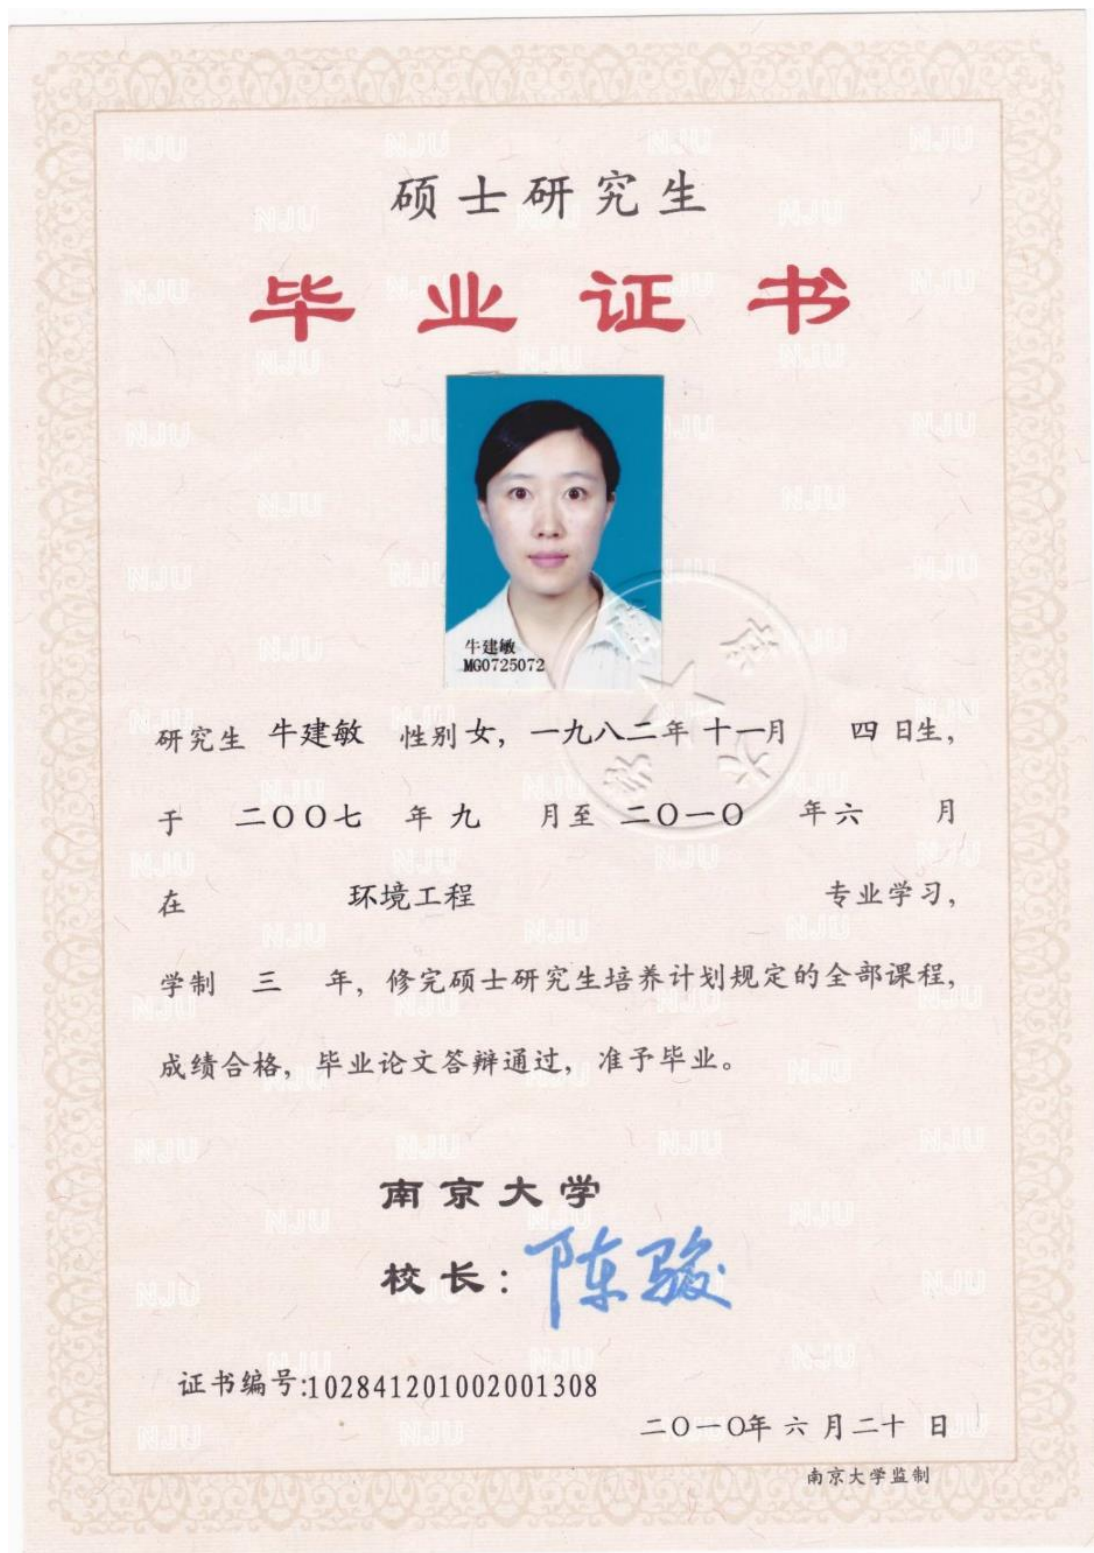 硕士研究生
毕业证书
牛建敏
MG0725072
研究生 牛建敏 性别 女，一九八二年 十一月 四 日生，
于 二〇〇七 年 九 月至 二〇一〇 年 六 月
在 环境工程 专业学习，
学制 三 年，修完硕士研究生培养计划规定的全部课程，
成绩合格，毕业论文答辩通过，准予毕业。
南京大学
校长：陈骏
证书编号:102841201002001308
二〇一〇年 六 月 二十 日
南京大学监制
NJU